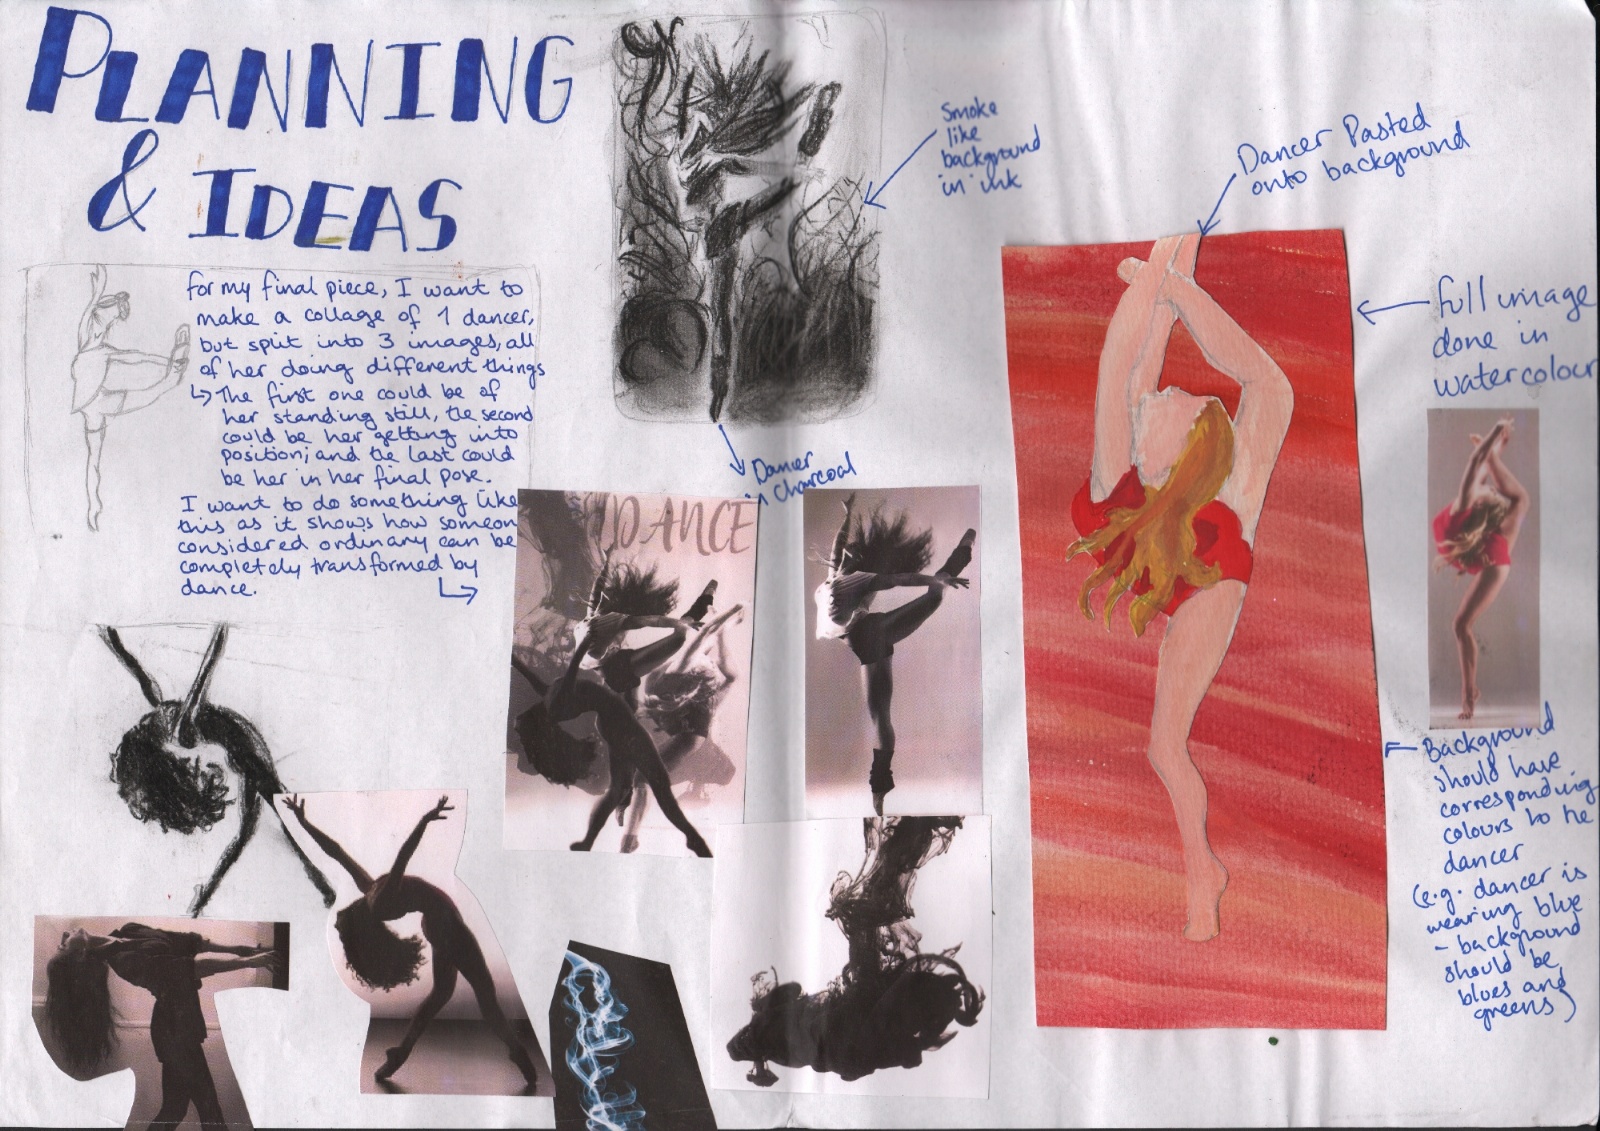 PLANNING
& IDEAS
for my final piece, I want to
make a collage of 1 dancer,
but split into 3 images, all
of her doing different things
↳ The first one could be of
her standing still, the second
could be her getting into
position; and the last could
be her in her final pose.
I want to do something like
this as it shows how someon
considered ordinary can be
completely transformed by
dance.
Smoke
like
background
in ink
Dancer
in charcoal
DANCE
Dancer Pasted
onto background
full image
done in
watercolour
Background
should have
corresponding
colours to the
dancer
(e.g. dancer is
wearing blue
- background
should be
blues and
greens)